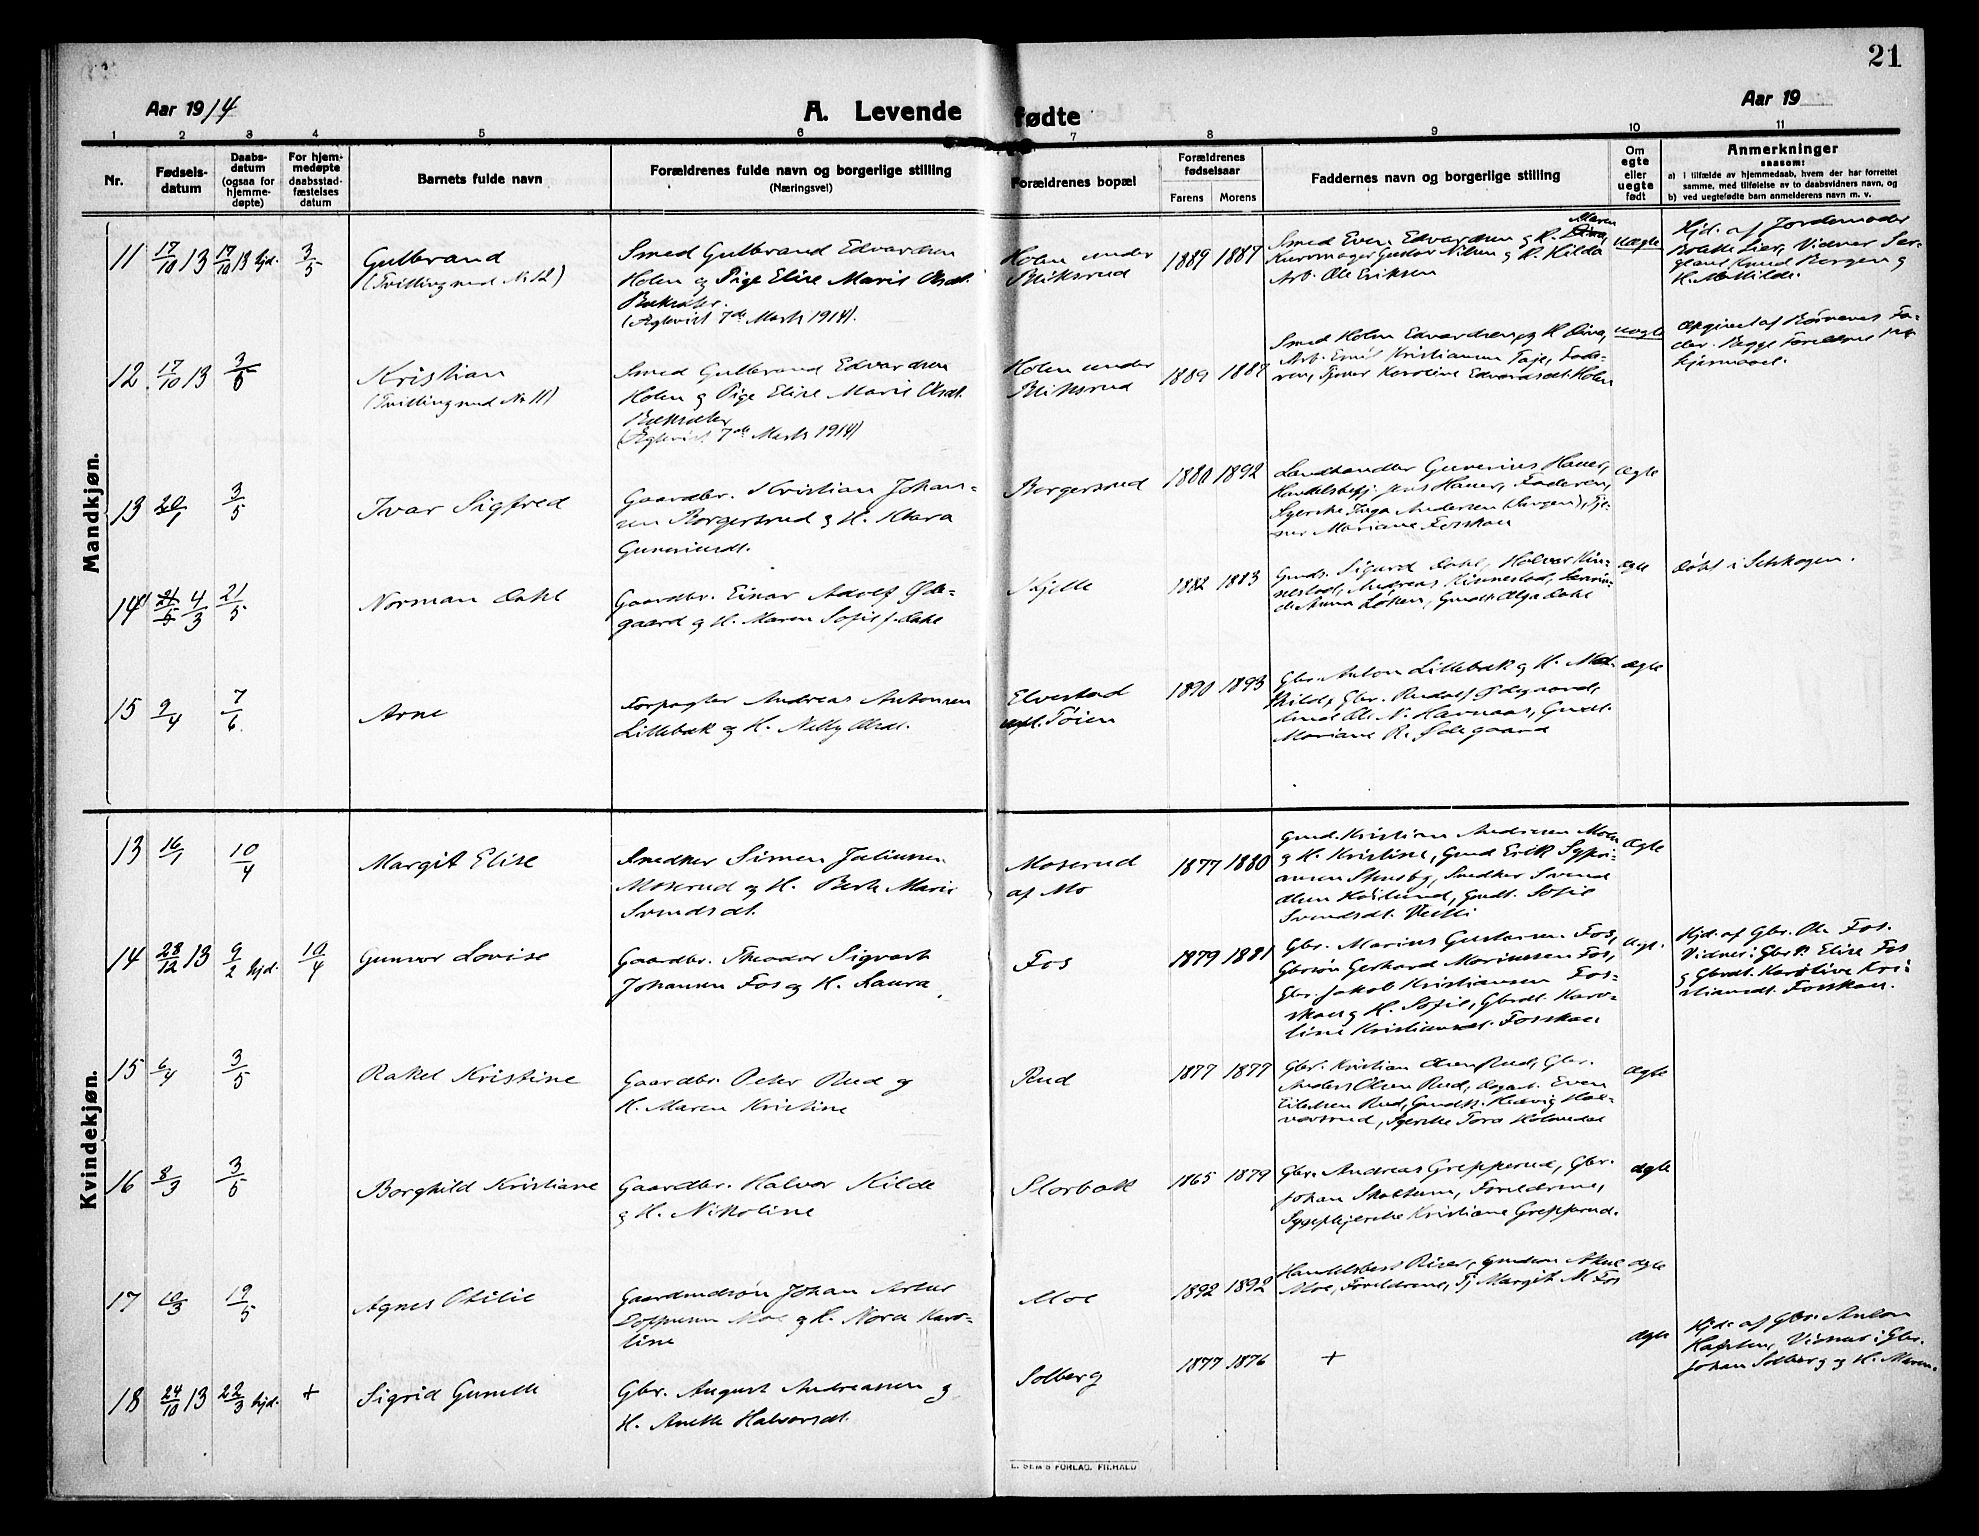 21
Aar 1914
A. Levende
fødte
Aar 19
1 2 3 4 5 6 7 8 9 10 11
Nr.
Fødsels-
datum
Daabs-
datum
(ogsaa for
hjemme-
døpte)
For hjem-
medøpte
daabsstad-
fæstelses
datum
Barnets fulde navn
Forældrenes fulde navn og borgerlige stilling
(Næringsvei)
Forældrenes bopæl
Forældrenes
fødselsaar
Farens Morens
Faddernes navn og borgerlige stilling
Om
egte
eller
uegte
født
Anmerkninger
saasom:
a) i tilfælde av hjemmedaab, hvem der har forrettet
samme, med tilføielse av to daabsvidners navn, og
b) ved uegtefødte barn anmelderens navn m. v.
Mandkjøn.
11 17/10 13 17/10 13 hjd. 3/5
Gulbrand
(Tvilling med Nr 12)
Smed Gulbrand Edvardsen
Holen og Pige Elise Marie Olsdt.
(Egteviet 7de Marts 1914).
Holen under
Bliksrud
1889 1887
Maren
Smed Even Edvardsen og H.
Gustav Nilsen og H. Hilda
Arb. Ole Eriksen
uægte
Hjd. af Jordemoder
Vidner
Knud Borgen og
H. Mathilde.
12 17/10 13 3/5
Kristian
(Tvilling med Nr 11)
Smed Gulbrand Edvardsen
Holen og Pige Elise Marie Olsdt.
(Egteviet 7de Marts 1914)
Holen under
Bliksrud
1889 1887
Smed Holm Edvardsen og H.
Arb. Emil Kristiansen
Karoline Edvardsdt. Holen
uægte
Opgivet af Børnenes Fa-
der. Begge Forældre
13 20/1 3/5
Ivar Sigfred
Gaardbr. Kristian Johan-
sen Borgersrud og H. Klara
Guneriusdt.
Borgersrud
1880 1892
Landhandler Gunerius Hauer,
Jens Hauer, Faderen,
Syerske Inga Andersen
Mariane Fosskau
ægte
14 21/5 4/3 21/5
Norman Dahl
Gaardbr. Einar Adolf Øde-
gaard og H. Maren Sofie f. Dahl
Kjelle
1882 1883
Gmds. Sigurd Dahl, Halvor Kin-
nestad, Andreas Kinnestad,
Anna Løken, Gmdt. Olga Dahl
ægte
Døbt i Setskogen.
15 9/4 7/6
Arne
Forpagter Andreas Antonsen
Lillebæk og H. Nelly Olsdt.
Elvestad
Tøien
1890 1893
Gbr. Anton Lillebæk og H. Mat-
hilde, Gbr. Rudolf Ødegaard,
Ole N. Havnaas, Gmdt.
Mariane R. Ødegaard
ægte
Kvindekjøn.
13 16/1 10/4
Margit Elise
Snedker Simen Juliussen
Moserud og H. Berte Marie
Svendsdt.
Moserud
af Mo
1877 1880
Gmd. Kristian Andresen Moen
og H. Kristine, Gmd Erik Sypri-
ansen Skusby, Snedker Svend
Olsen Kaslund, Gmdt. Sofie
Svendsdt.
ægte
14 28/12 13 9/2 hjd. 10/4
Gunvor Lovise
Gaardbr. Theodor Sigvart
Johansen Fos og H. Laura
Fos
1879 1881
Gbr. Marius Gustavsen Fos,
Gbrsøn Gerhard Marinussen Fos,
Gbr. Jakob Kristiansen Fos-
skau og H. Sofie, Gbrdt. Karo-
line Kristiansdt. Fosskau
ægt.
Hjd. af Gbr. Ole Fos.
Vidner: Gbr.k. Elise Fos
og Gbrdt. Karoline Kri-
stiansdt. Fosskau.
15 6/4 3/5
Rakel Kristine
Gaardbr. Peter Rud og
H. Maren Kristine
Rud
1877 1877
Gbr. Kristian Olsen Rud, Gbr.
Anders Olsen Rud, Even
Eilertsen Rud, Hedvig Hal-
vorsrud, Syerske Tora Holmedal
ægte
16 8/3 3/5
Borghild Kristiane
Gaardbr. Halvor Kilde
og H. Nikoline
Storbæk
1865 1879
Gbr. Andreas Grepperud, Gbr.
Johan Forældrene,
Sygepleierske Kristiane Grepperud.
ægte
17 10/3 19/5
Agnes Otilie
Gaardmdssøn Johan Artur
Moe og H. Nora Karo-
line
Moe
1892 1892
Handelsbest. Riser, Gmdsøn
Moe, Forældrene, Tj Margit M. Fos
ægte
18 24/10 13 22/3 hjd. +
Sigrid Gunelle
Gbr. August Andreassen og
H. Anette Halvorsdt.
Solberg
1877 1876
+
ægte
Hjd. af Gbr. Anton
Vidner: Gbr.
Johan Solberg og H. Maren.
E. SEM'S FORLAG, FR.HALD